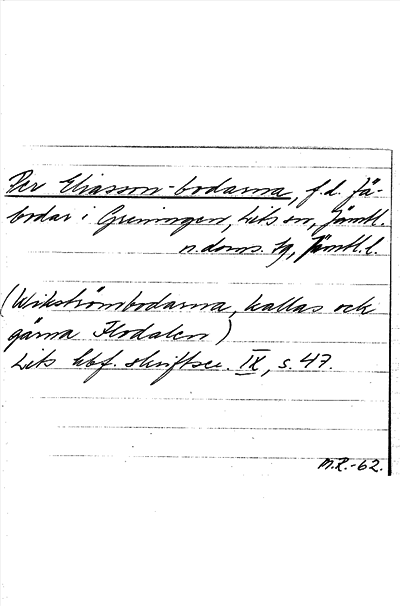 Per Eliasson-bodarna, f.d. fä-
bodar i Greningen, Lits sn, Jämtl.
n. doms. tg, Jämtl. l.
(Wikströmbodarna, kallas och
gärna Flodalen)
Lits hbf. skriftser. IX, s. 47.
M.R.-62.